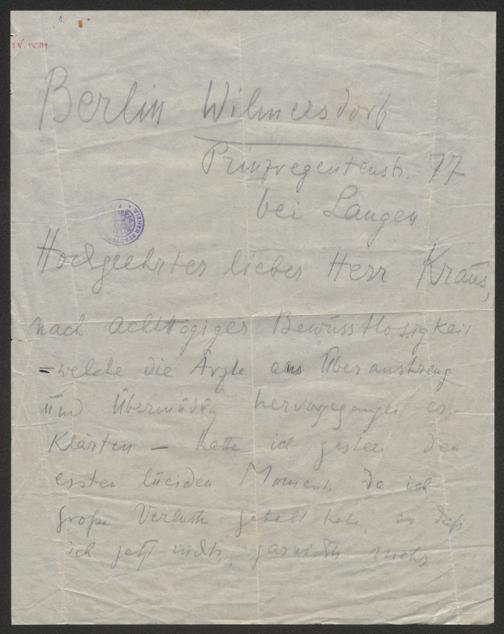 Berlin Wilmersdorf
Prinzregentenstr. 77
bei Langen
Hochgeehrter lieber Herr Kraus,
nach achttägiger Bewusstlosigkeit
– welche die Ärzte aus Überanstreng
und Übermüdg hervorgegangen er-
klärten – hatte ich gestern den
ersten luciden Moment da ich
große Verluste gehabt habe, so daß
ich jetzt nichts, gar nichts mehr